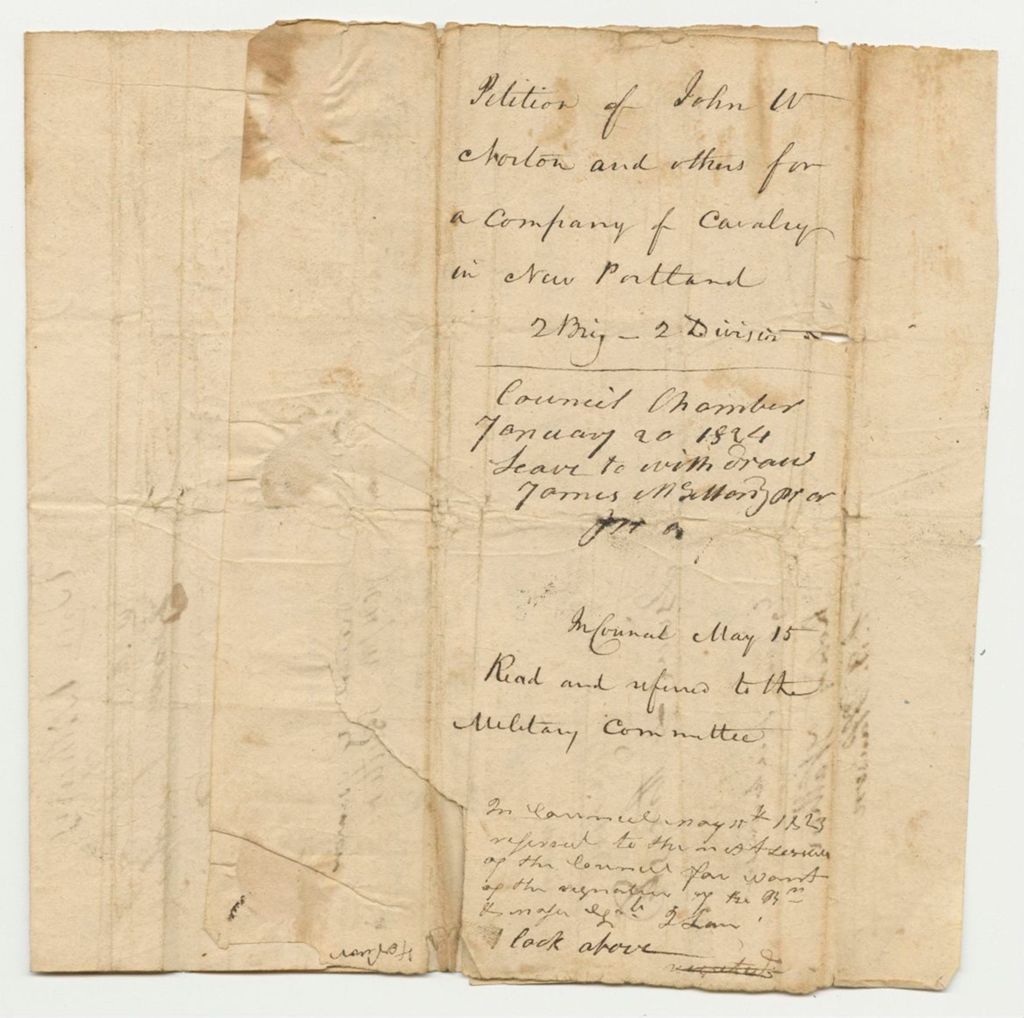 Petition of John W
Norton and others for
a Company of Cavalry
in New Portland
2 Brig - 2 Division
Council Chamber
January 20 1824
Leave to withdraw
James
In Council May 15
Read and referred to the
Military Committee
In Council May 15th 1823
referred to the next session
of the Council for want
of the signature of the
look above